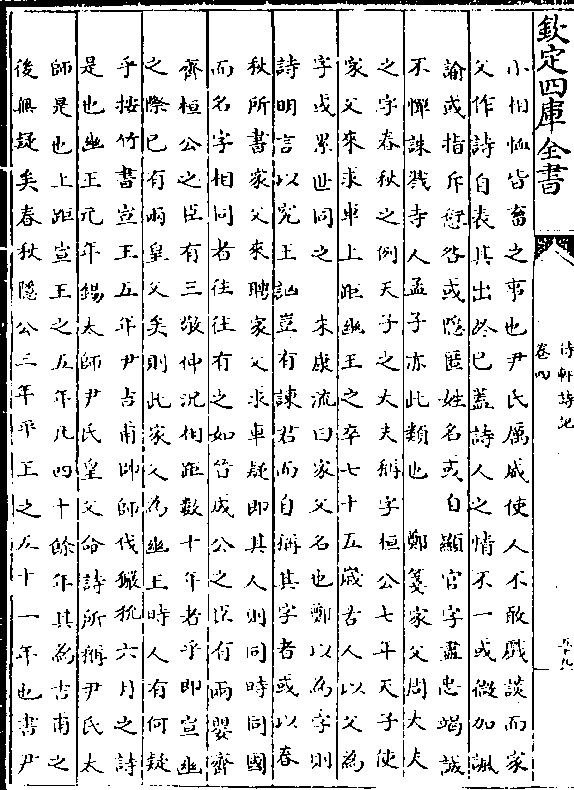 欽定四庫全書
卷四
小相恤皆畜之事也尹氏厲威使人不敢戲談而家
父作詩自表其出於已蓋詩人之情不一或微加諷
諭或指斥愆咎或隱匿姓名或自顯官字盡忠竭誠
不憚誅戮寺人孟子亦此類也　鄭箋家父周大夫
之字春秋之例天子之大夫稱字桓公七年天子使
家父來求車上距幽王之卒七十五歲古人以父為
字或累世同之　朱康流曰家父名也鄭以為字則
詩明言以究王訩豈有諫君而自稱其字者或以春
秋所書家父來聘家父求車疑即其人則同時同國
而名字相同者往往有之如魯成公之臣有兩嬰齊
齊桓公之臣有三敬仲況相距數十年者乎即宣幽
之際已有兩皇父矣則此家父為幽王時人有何疑
乎按竹書宣王五年尹吉甫帥師伐玁狁六月之詩
是也幽王元年錫太師尹氏皇父命詩所稱尹氏太
師是也上距宣王之五年凡四十餘年其為吉甫之
後無疑矣春秋隱公三年平王之五十一年也書尹